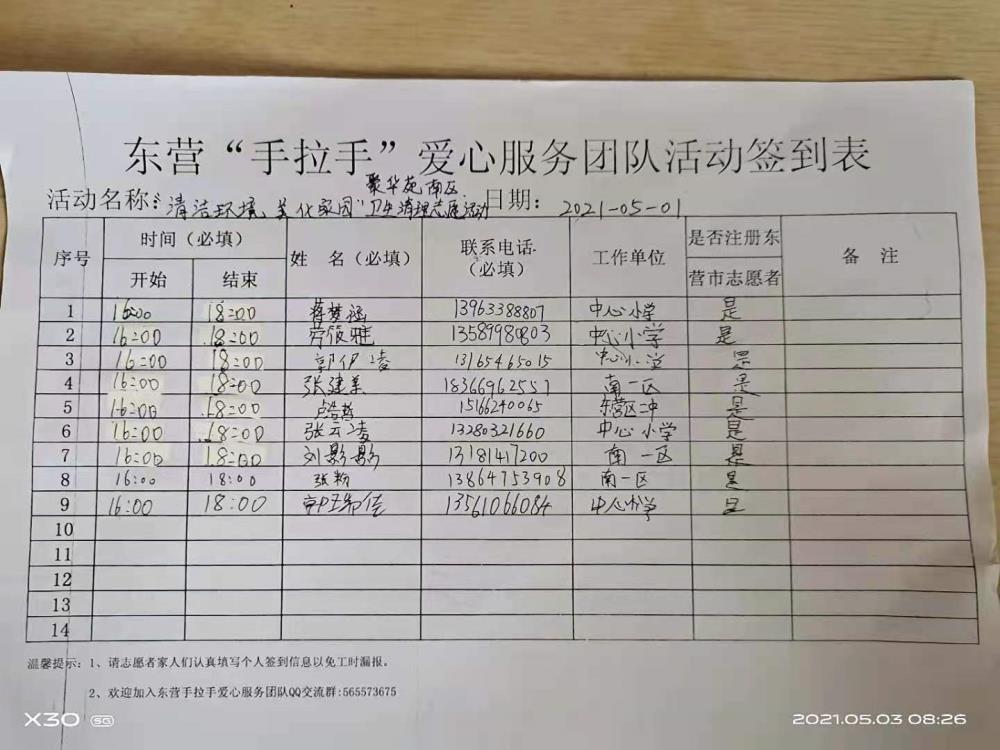 东营“手拉手”爱心服务团队活动签到表
聚华苑南区
活动名称:"清洁环境,美化家园"卫生清理志愿活动 日期: 2021-05-01
序号 时间(必填) 姓 名(必填) 联系电话(必填) 工作单位 是否注册东营市志愿者 备 注
开始 结束
1 16:00 18:00 蒋梦涵 13963388807 中心小学 是
2 16:00 18:00 劳筱雅 13589980803 中心小学 是
3 16:00 18:00 郭伊凌 13165465015 中心小学 是
4 16:00 18:00 张建美 18366962557 南一区 是
5 16:00 18:00 15166240065 东营区二中 是
6 16:00 18:00 张云凌 13280321660 中心小学 是
7 16:00 18:00 刘影影 13181417200 南一区 是
8 16:00 18:00 张粉 13864753908 南一区 是
9 16:00 18:00 13561066084 中心小学 是
10
11
12
13
14
温馨提示:1、请志愿者家人们认真填写个人签到信息以免工时漏报。
2、欢迎加入东营手拉手爱心服务团队QQ交流群:565573675
X30 5G 2021.05.03 08:26